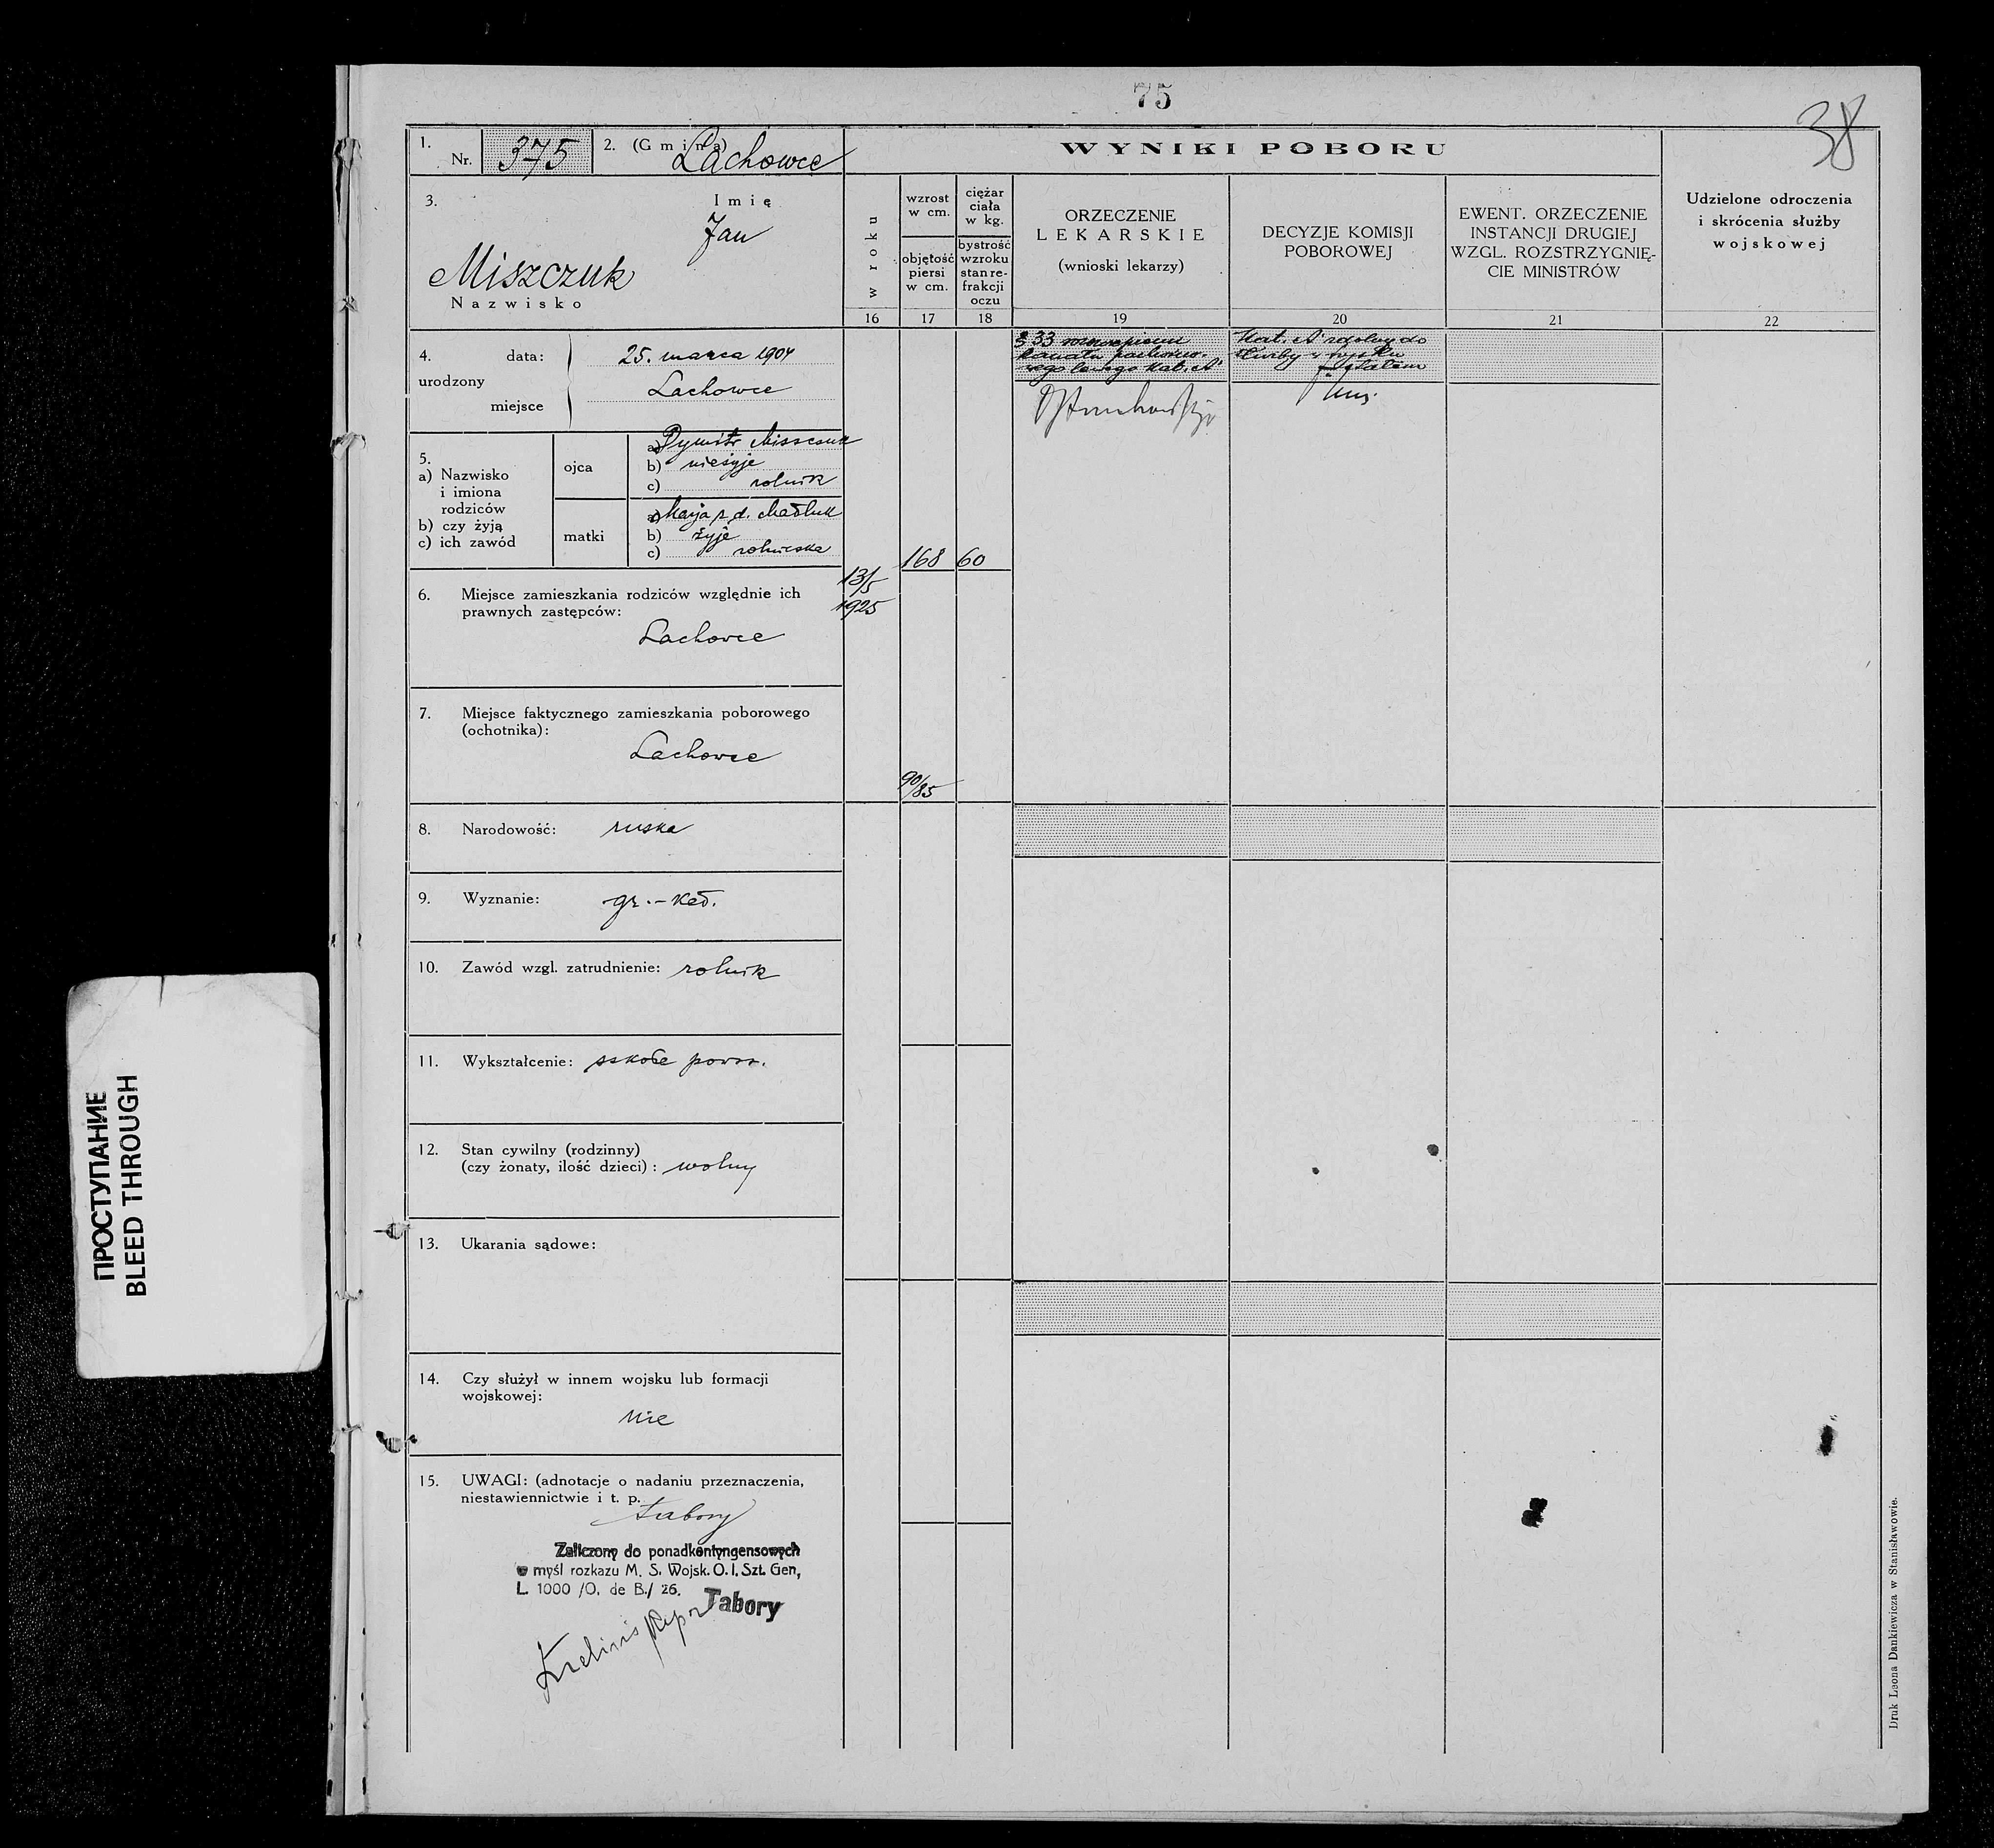 75
38
1.
Nr. 375
2. (Gmina) Lachowce
WYNIKI POBORU
3.
Imię
Jan
Miszczuk
Nazwisko
w roku
wzrost
w cm.
objętość
piersi
w cm.
ciężar
ciała
w kg.
bystrość
wzroku
stan re-
frakcji
oczu
ORZECZENIE
LEKARSKIE
(wnioski lekarzy)
DECYZJE KOMISJI
POBOROWEJ
EWENT. ORZECZENIE
INSTANCJI DRUGIEJ
WZGL. ROZSTRZYGNIĘ-
CIE MINISTRÓW
Udzielone odroczenia
i skrócenia służby
wojskowej
16 17 18 19 20 21 22
4.
urodzony
data: 25. marca 1904
miejsce Lachowce
§ 33
kanału
lewego kat. A
Kat. A zdolny do
służby w wojsku
5.
a) Nazwisko
i imiona
rodziców
b) czy żyją
c) ich zawód
ojca
a) Dymitr Miszczuk
b) nieżyje
c) rolnik
matki
a) Marja z d.
b) żyje
c) rolniczka
168 60
13/5
1925
6. Miejsce zamieszkania rodziców względnie ich
prawnych zastępców:
Lachowce
7. Miejsce faktycznego zamieszkania poborowego
(ochotnika):
Lachowce
90/85
8. Narodowość: ruska
9. Wyznanie: gr.-kat.
10. Zawód wzgl. zatrudnienie: rolnik
11. Wykształcenie: szkoła powsz.
12. Stan cywilny (rodzinny)
(czy żonaty, ilość dzieci): wolny
13. Ukarania sądowe:
14. Czy służył w innem wojsku lub formacji
wojskowej:
nie
15. UWAGI: (adnotacje o nadaniu przeznaczenia,
niestawiennictwie i t. p.
tabory
Zaliczony do ponadkontyngensowych
w myśl rozkazu M. S. Wojsk. O. I. Szt. Gen,
L. 1000 /O. de B./ 26.
Tabory
Druk Leona Dankiewicza w Stanisławowie.
ПРОСТУПАНИЕ
BLEED THROUGH